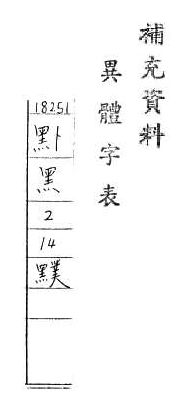 補充資料
異體字表
18251
黑
2
14